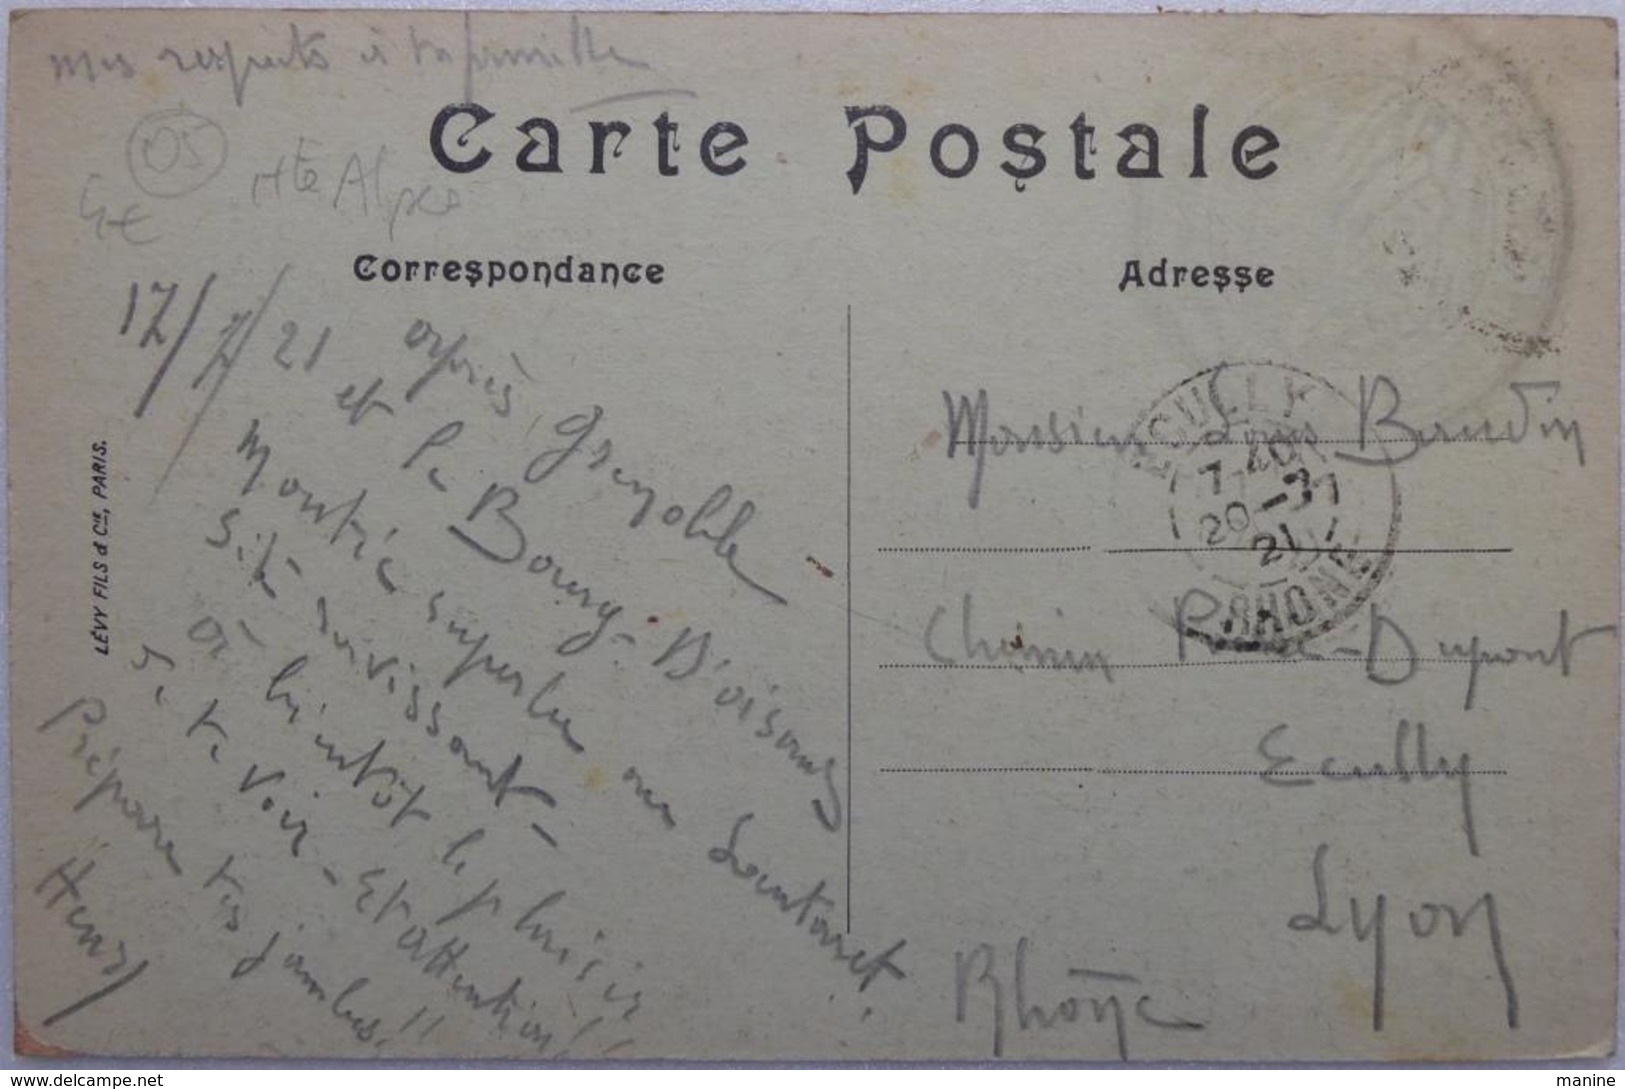 mes respects à ta famille
Carte Postale
05
Hte Alpes
5€
Correspondance
Adresse
17/7/21 après Grenoble
et le Bourg-D'oisans
Montée superbe au Lautaret.
Site ravissant-
à bientôt le plaisir
de te voir - Et attention!!
Prépare tes jambes!!
Henry
LÉVY FILS & Cie, PARIS.
Monsieur Louis Baudin
Chemin -Dupont
Ecully
Lyon
Rhône
ECULLY
7 40
20 -7
21
RHONE
manine